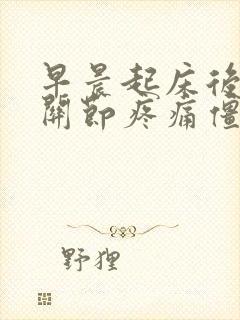 早晨起床後
關節疼痛僵
野狸